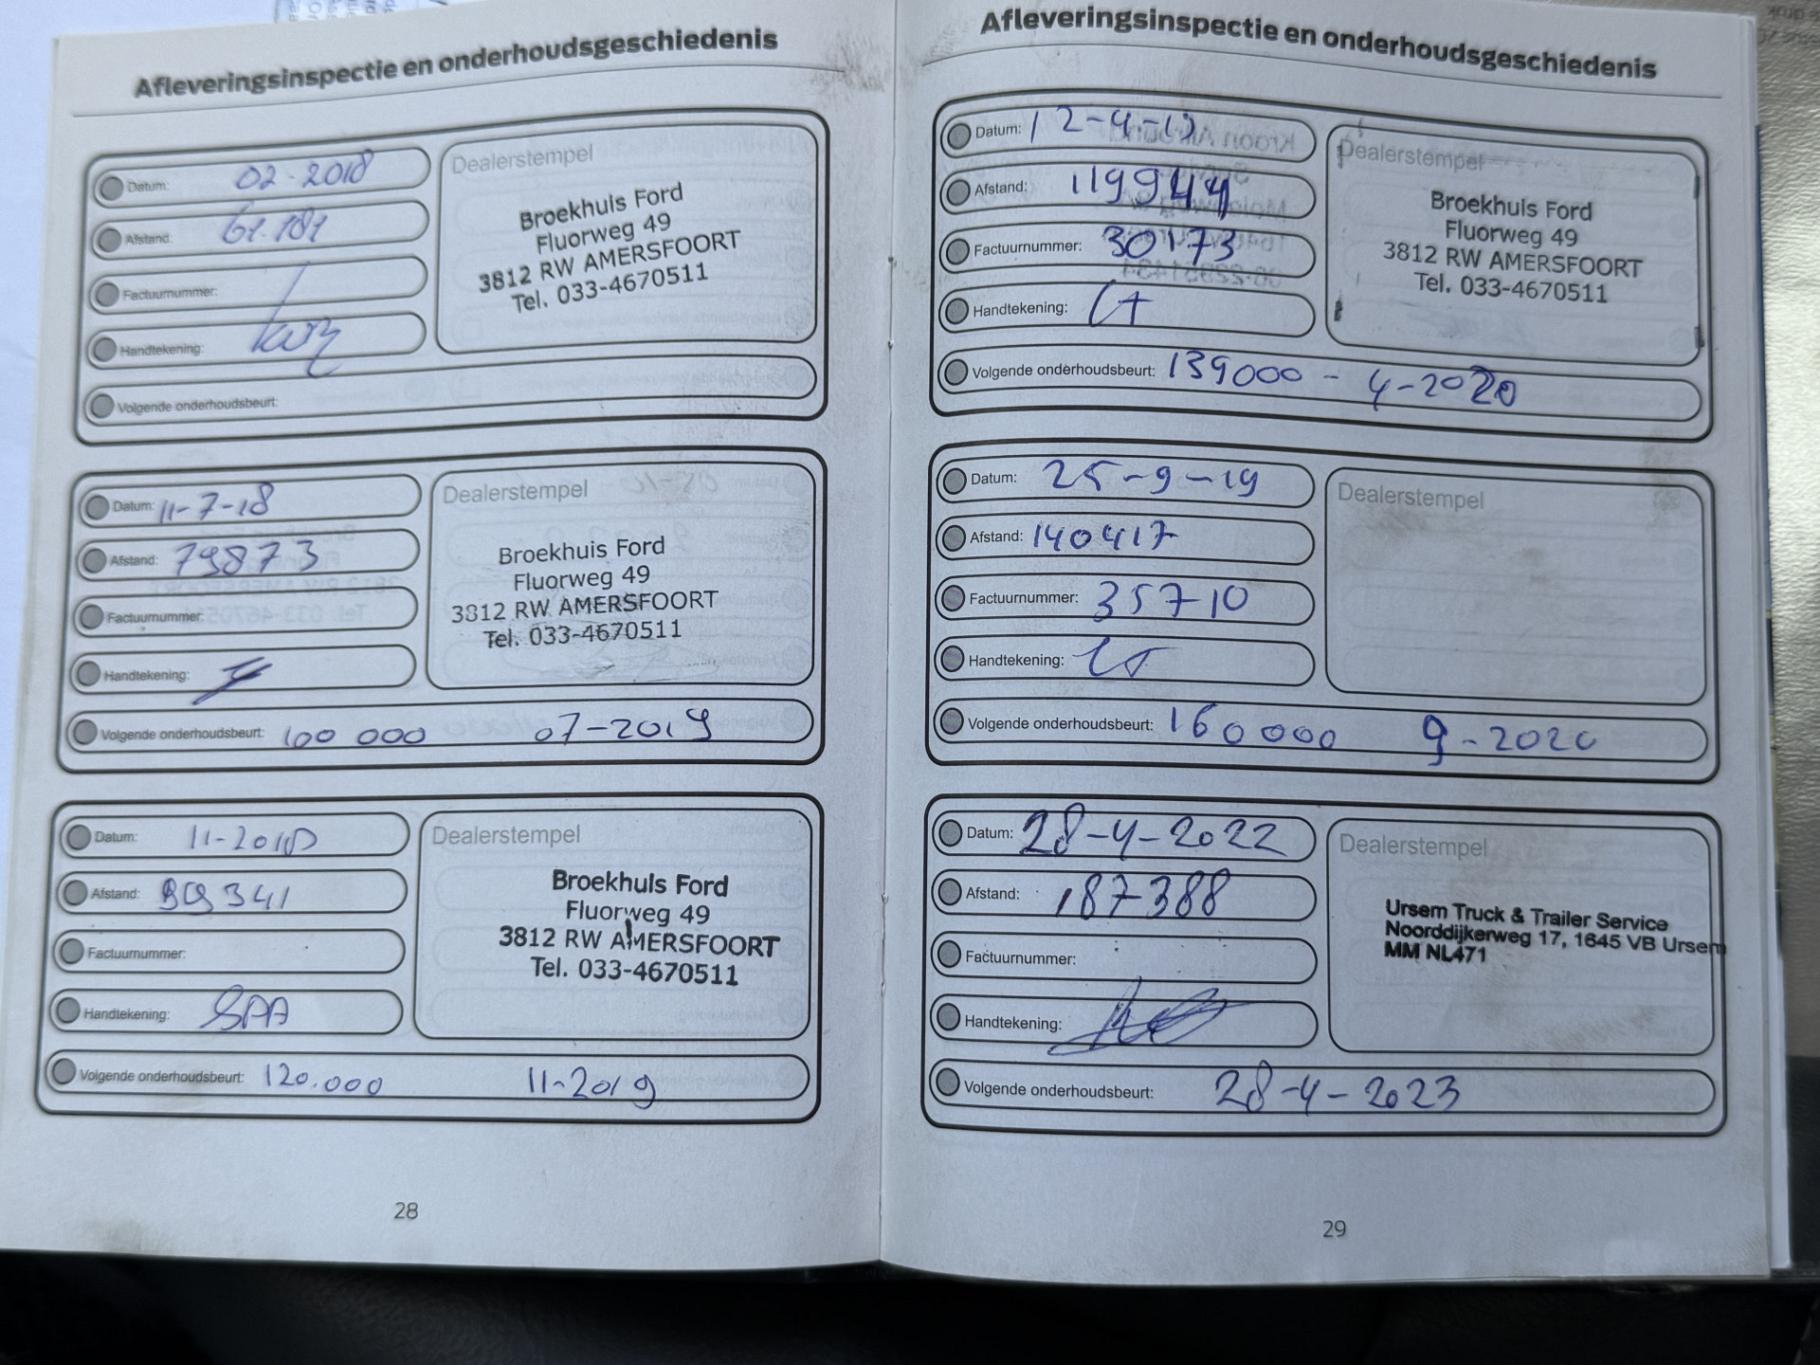 Afleveringsinspectie en onderhoudsgeschiedenis
Datum: 02-2018
Afstand: 61.181
Factuurnummer:
Handtekening:
Volgende onderhoudsbeurt:
Dealerstempel
Broekhuis Ford
Fluorweg 49
3812 RW AMERSFOORT
Tel. 033-4670511
Datum: 11-7-18
Afstand: 79873
Factuurnummer:
Handtekening:
Volgende onderhoudsbeurt: 100 000 07-2019
Dealerstempel
Broekhuis Ford
Fluorweg 49
3812 RW AMERSFOORT
Tel. 033-4670511
Datum: 11-2018
Afstand:
Factuurnummer:
Handtekening:
Volgende onderhoudsbeurt: 120.000 11-2019
Dealerstempel
Broekhuis Ford
Fluorweg 49
3812 RW AMERSFOORT
Tel. 033-4670511
28
Afleveringsinspectie en onderhoudsgeschiedenis
Datum: 12-4-19
Afstand: 119944
Factuurnummer: 30173
Handtekening:
Volgende onderhoudsbeurt: 139000 - 4-2020
Dealerstempel
Broekhuis Ford
Fluorweg 49
3812 RW AMERSFOORT
Tel. 033-4670511
Datum: 25-9-19
Afstand: 140417
Factuurnummer: 35710
Handtekening:
Volgende onderhoudsbeurt: 160000 9-2020
Dealerstempel
Datum: 28-4-2022
Afstand: 187388
Factuurnummer:
Handtekening:
Volgende onderhoudsbeurt: 28-4-2023
Dealerstempel
Ursem Truck & Trailer Service
Noorddijkerweg 17, 1645 VB Ursem
MM NL471
29